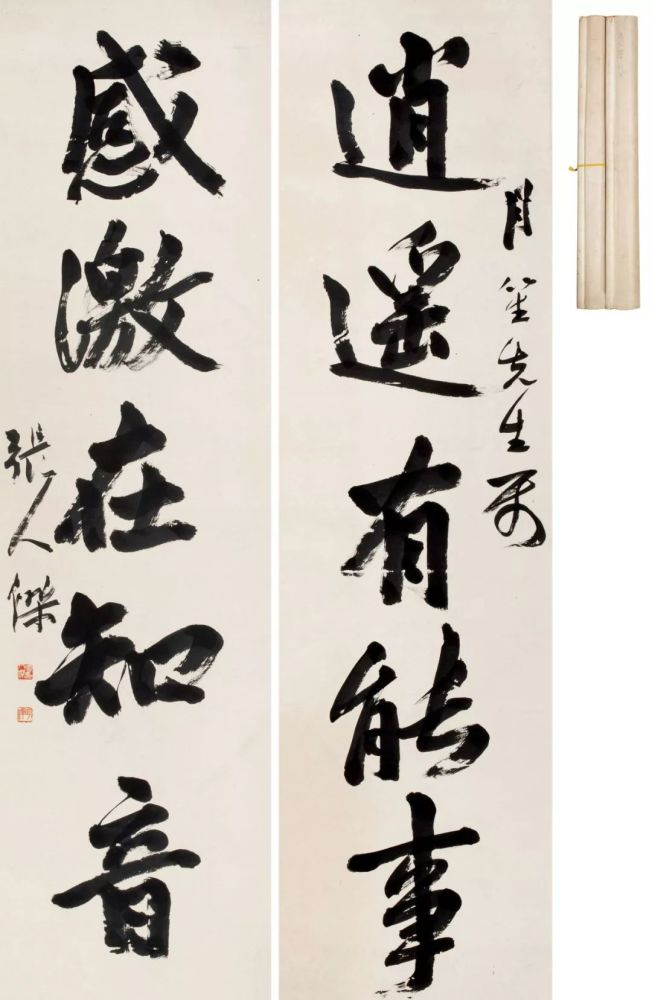 逍遥有能事
月笙先生属
感激在知音
張人傑